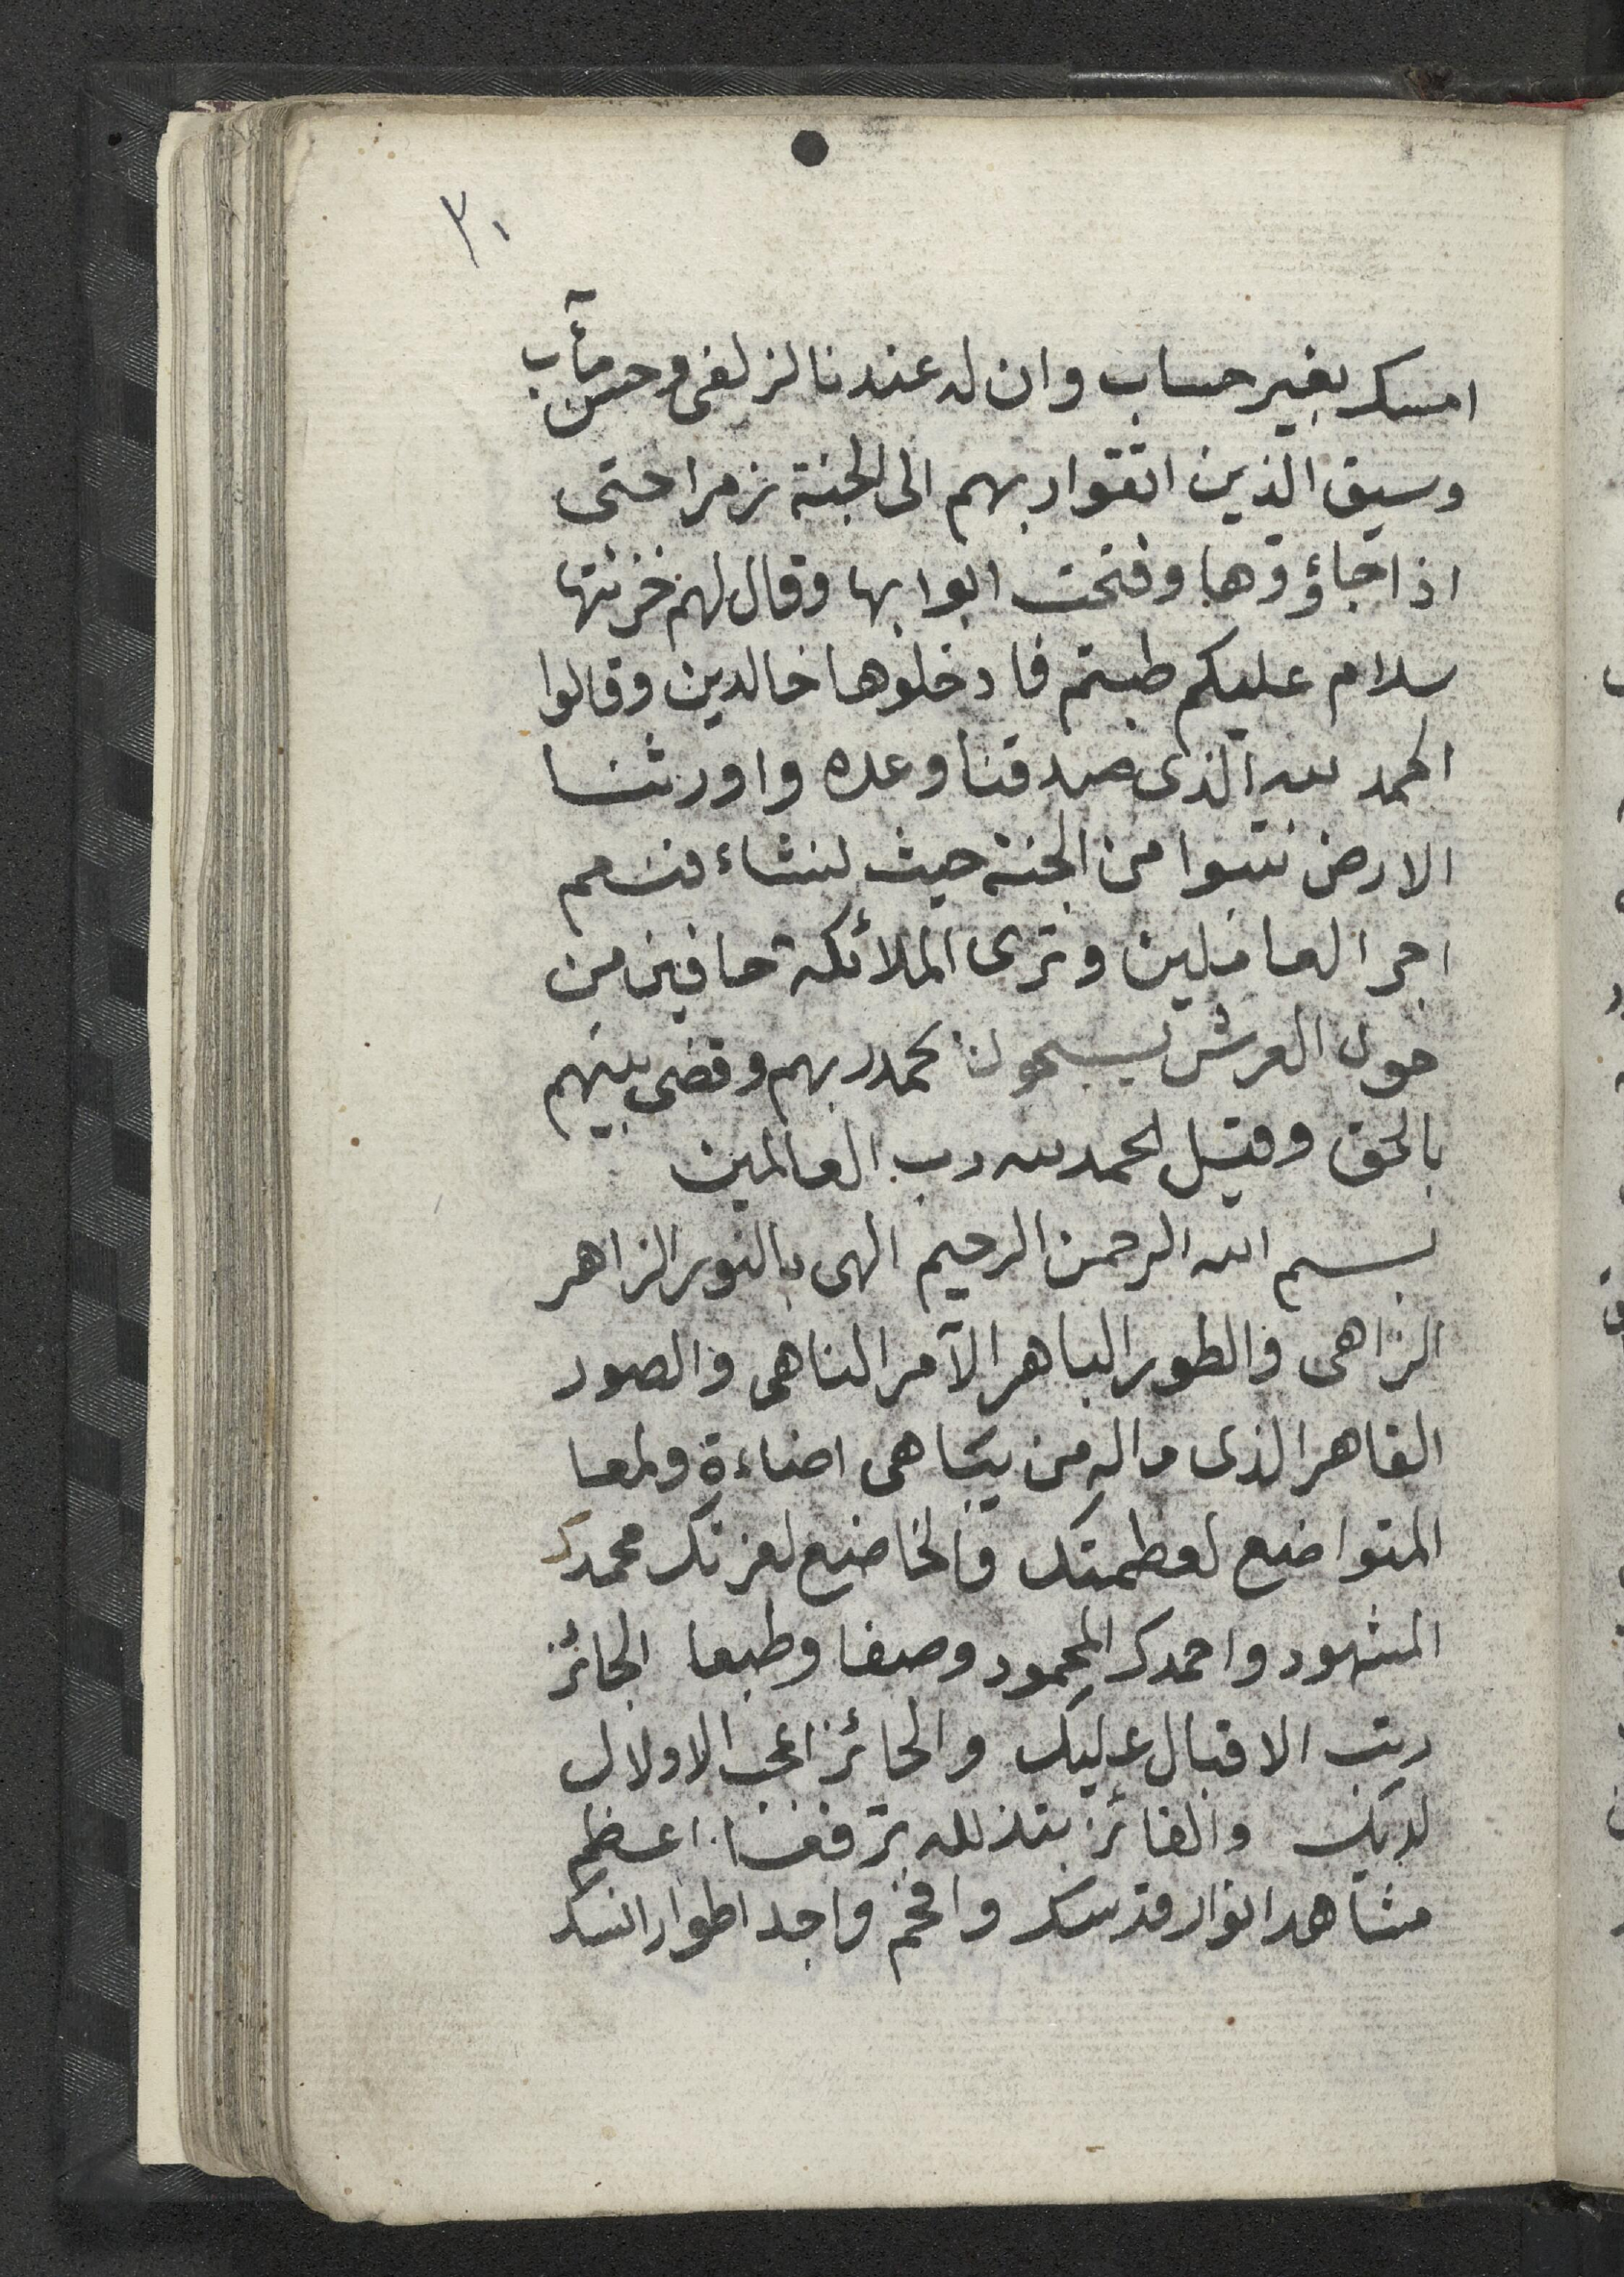 ٣٠
امسك بغير حساب وان له عندنا لزلفى وحسن مآب
وسيق الذين اتقوا ربهم الى الجنة زمرا حتى
اذا جاؤوها وفتحت ابوابها وقال لهم خزنتها
سلام عليكم طبتم فادخلوها خالدين وقالوا
الحمد لله الذى صدقنا وعده واورثنا
الارض نتبوا من الجنة حيث نشاء فنعم
اجر العاملين وترى الملائكة حافين من
حول العرش يسبحون بحمد ربهم وقضى بينهم
بالحق وقيل الحمد لله رب العالمين
بسم الله الرحمن الرحيم الهى بالنور الزاهر
الزاهى والطور الباهر الآمر الناهى والصور
القاهر الذى ماله من يباهى اضاءة ولمعا
المتواضع لعظمتك والخاضع لعزتك محمدك
المشهود واحمدك المحمود وصفا وطبعا الجائز
رتب الاقبال عليك والحائز اعجب الاولال
لديك والفائز بتذلله ترفقا اعظم
مشاهد انوار قدسك وافخم واجد اطوار انسك